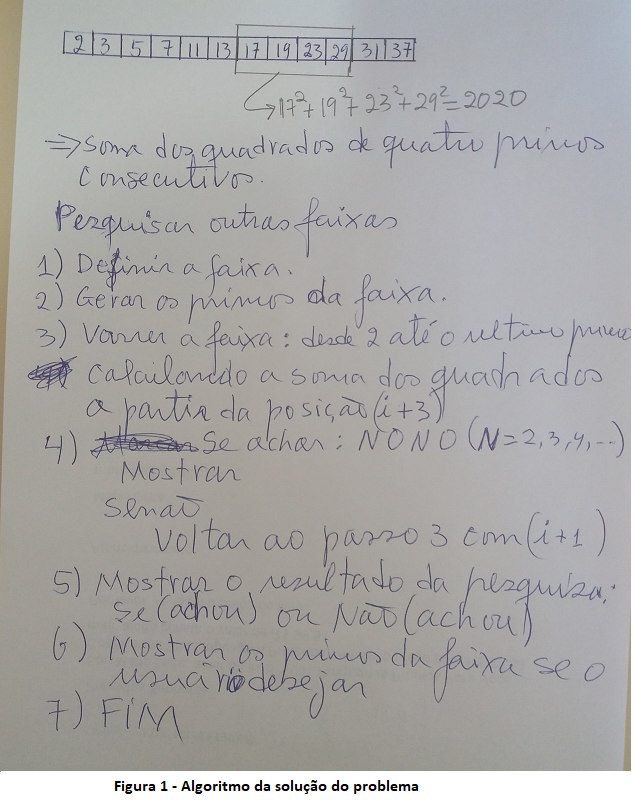 2 3 5 7 11 13 17 19 23 29 31 37
17²+19²+23²+29²=2020
=> Soma dos quadrados de quatro primos
consecutivos.
Pesquisar outras faixas
1) Definir a faixa.
2) Gerar os primos da faixa.
3) Varrer a faixa: desde 2 até o ultimo primo
calculando a soma dos quadrados
a partir da posição (i+3)
4) Se achar: NONO (N=2,3,4,...)
Mostrar
senão
Voltar ao passo 3 com (i+1)
5) Mostrar o resultado da pesquisa:
Se (achou) ou Não (achou)
6) Mostrar os primos da faixa se o
usuário desejar
7) FIM
Figura 1 - Algoritmo da solução do problema